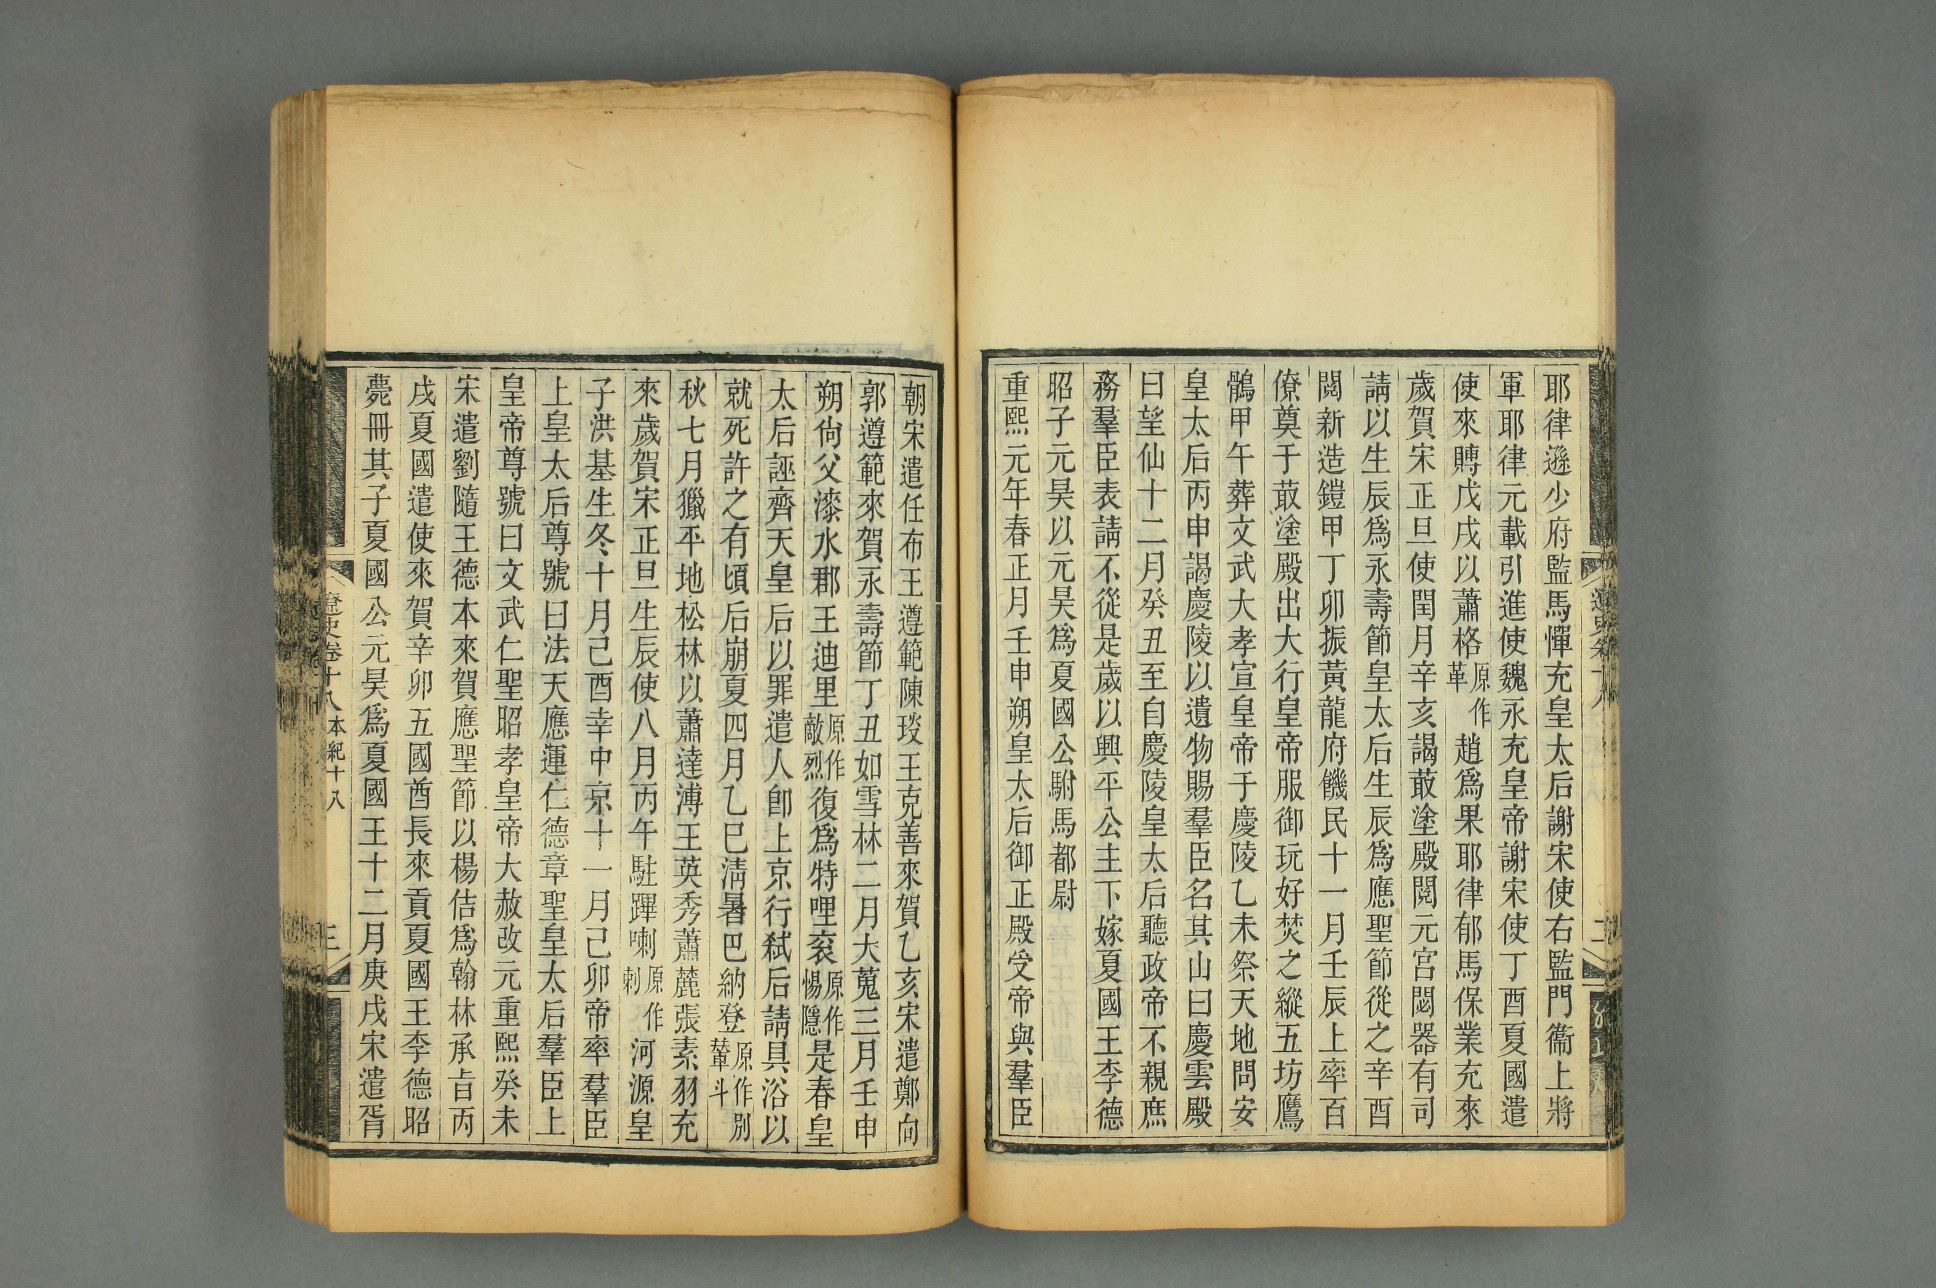 耶律遜少府監馬憚充皇太后謝宋使右監門衞上將
軍耶律元載引進使魏永充皇帝謝宋使丁酉夏國遣
使來賻戊戌以蕭格原作革趙爲果耶律郁馬保業充來
歲賀宋正旦使閏月辛亥謁菆塗殿閱元宮閟器有司
請以生辰爲永壽節皇太后生辰爲應聖節從之辛酉
閱新造鎧甲丁卯振黃龍府饑民十一月壬辰上率百
僚奠于菆塗殿出大行皇帝服御玩好焚之縱五坊鷹
鶻甲午葬文武大孝宣皇帝于慶陵乙未祭天地問安
皇太后丙申謁慶陵以遺物賜羣臣名其山曰慶雲殿
曰望仙十二月癸丑至自慶陵皇太后聽政帝不親庶
務羣臣表請不從是歲以興平公主下嫁夏國王李德
昭子元昊以元昊爲夏國公駙馬都尉
重熙元年春正月壬申朔皇太后御正殿受帝與羣臣
朝宋遣任布王遵範陳琰王克善來賀乙亥宋遣鄭向
郭遵範來賀永壽節丁丑如雪林二月大蒐三月壬申
朔尙父漆水郡王迪里原作敵烈復爲特哩袞原作惕隱是春皇
太后誣齊天皇后以罪遣人卽上京行弒后請具浴以
就死許之有頃后崩夏四月乙巳淸暑巴納登原作別輦斗
秋七月獵平地松林以蕭達溥王英秀蕭麓張素羽充
來歲賀宋正旦生辰使八月丙午駐蹕喇原作剌河源皇
子洪基生冬十月己酉幸中京十一月己卯帝率羣臣
上皇太后尊號曰法天應運仁德章聖皇太后羣臣上
皇帝尊號曰文武仁聖昭孝皇帝大赦改元重熙癸未
宋遣劉隨王德本來賀應聖節以楊佶爲翰林承旨丙
戌夏國遣使來賀辛卯五國酋長來貢夏國王李德昭
薨冊其子夏國公元昊爲夏國王十二月庚戌宋遣胥
遼史卷十八 本紀十八 三